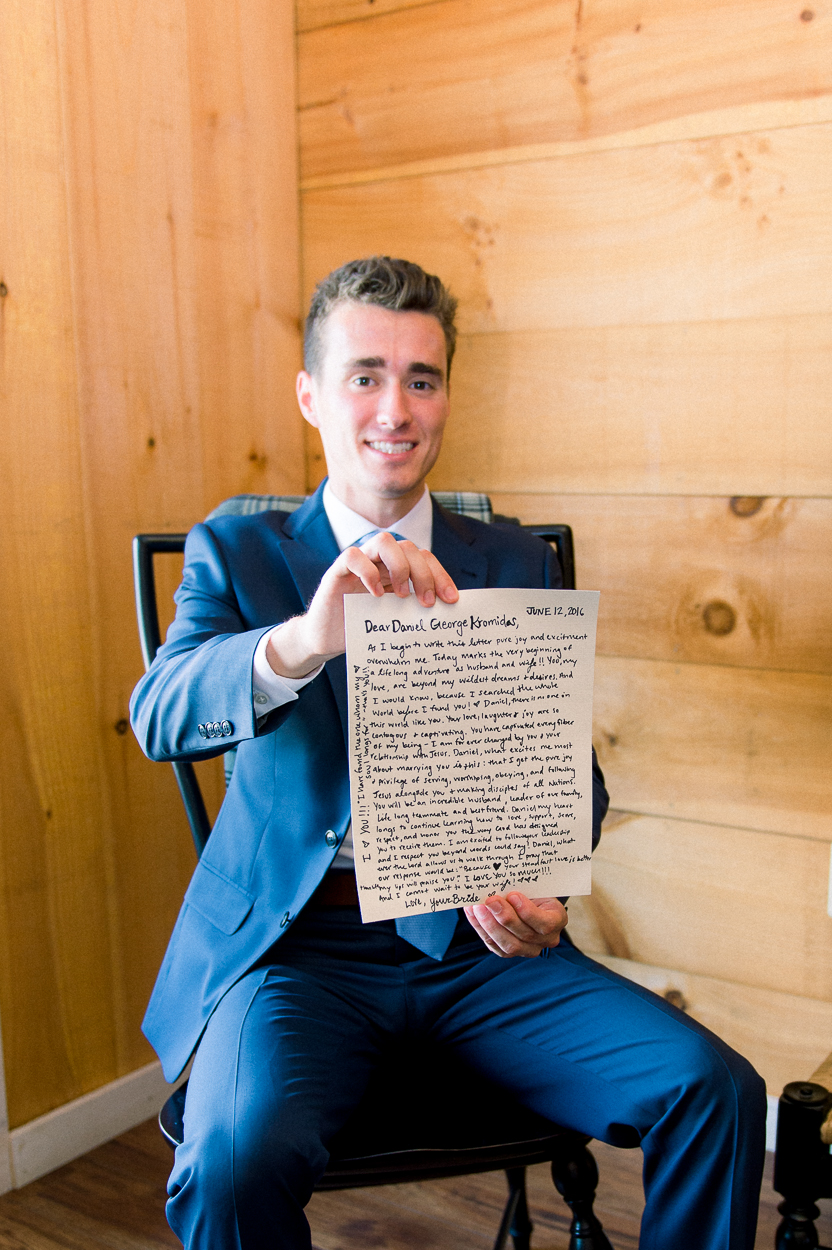 JUNE 12, 2016
Dear Daniel George Kromidas,
As I begin to write this letter pure joy and excitment
overwhelm me. Today marks the very beginning of
a life long adventure as husband and wife!! You, my
love, are beyond my wildest dreams + desires. And
I would know, because I searched the whole
World before I fund you! Daniel, there is no one in
this world like you. Your love, laughter + joy are so
contagous + captivating. You have captivated every fiber
of my being - I am for ever changed by you + your
relationship with Jesus. Daniel, what excites me most
about marrying you is this: that I get the pure joy
+ privilege of serving, worshiping, obeying, and following
Jesus alongside you + making disciples of all Nations.
You will be an incredible husband, leader of our family,
life long teammate and best friend. Daniel my heart
longs to continue learning how to love, support, serve,
respect, and honor you the way Lord has designed
you to receive them. I am excited to follow your leadership
and I respect you beyond words could say! Daniel, what
ever the Lord allows us to walk through I pray that
our response would be: "Because ♥ your steadfast love is better
than life my lips will praise you". I LOVE YOU SO MUCH!!!.
And I cannot wait to be your wife! ♡♡♡
Love, your Bride
I ♥ YOU!!! "I have found the one whom my
soul longs for"